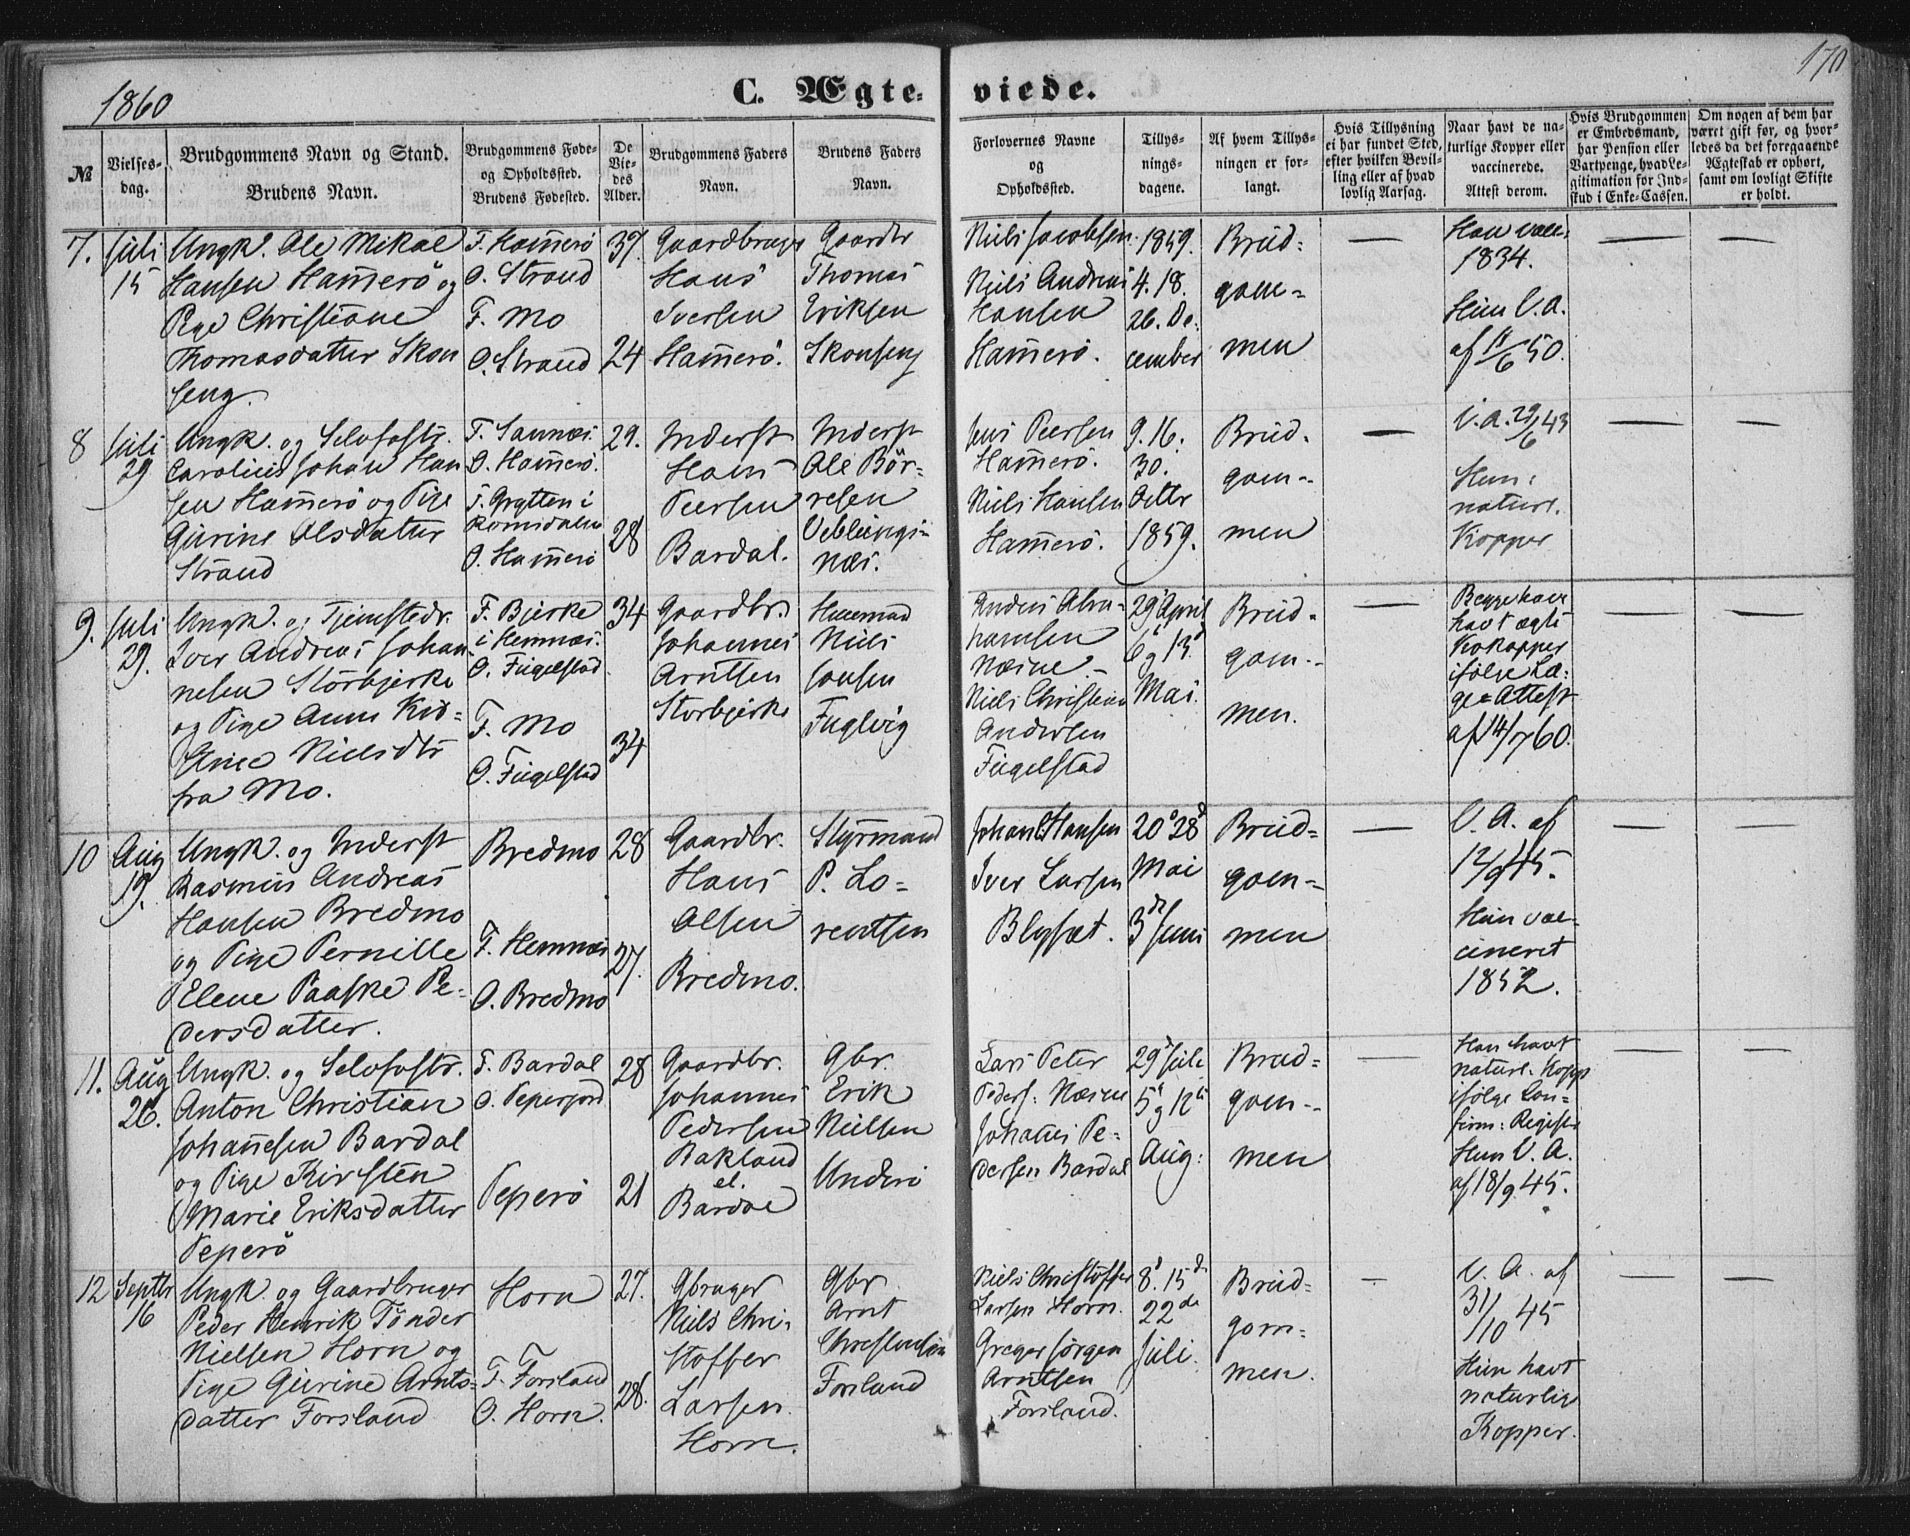 1860
C. Ægte-viede.
170
№
Vielses-
dag.
Brudgommens Navn og Stand.
Brudens Navn.
Brudgommens Føde-
og Opholdssted.
Brudens Fødested.
De
Vie-
des
Alder.
Brudgommens Faders
Navn.
Brudens Faders
Navn.
Forlovernes Navne
og
Opholdssted.
Tillys-
nings-
dagene.
Af hvem Tillys-
ningen er for-
langt.
Hvis Tillysning
ei har fundet Sted,
efter hvilken Bevil-
ling eller af hvad
lovlig Aarsag.
Naar havt de na-
turlige Kopper eller
vaccinerede.
Attest derom.
Hvis Brudgommen
er Embedsmand,
har Pension eller
Vartpenge, hvad Le-
gitimation for Ind-
skud i Enke-Cassen.
Om nogen af dem har
været gift før, og hvor-
ledes da det foregaaende
Ægteskab er ophørt,
samt om lovligt Skifte
er holdt.
7.
Juli
15
Ungk. Ole Mikal
Hansen Hamerö og
Pige Christiane
Thomasdatter Skon
seng.
F. Hamerö
O. Strand
F. Mo
O. Strand
37.
24
Gaardbruger
Hans
Iversen
Hamerö.
Gaardbr
Thomas
Eriksen
Skonseng
Niels Jacobsen
Niels Andreas
Hansen
Hamerö.
1859.
4. 18.
26. De-
cember
Brud-
gom-
men
—
Han vacc.
1834.
Hun V. A.
af 11/6 50.
—
—
8
Juli
29
Ungk. og Selvfostr.
Carolius Johan Han
sen Hamerö og Pige
Gurine Olsdatter
Strand
F. Sannæs
O. Hamerö.
F. Grytten i
Romsdalen
O. Hamerö
29.
28
Inderst
Hans
Peersen
Bardal.
Inderst
Ole Bör-
resen
Veblungs-
næs.
Jens Peersen
Hamerö.
Niels Hansen
Hamerö.
9. 16.
30.
Octbr
1859.
Brud-
gom-
men
—
V. A. 29/6 43
Hun:
naturl.
Kopper
—
—
9.
Juli
29.
Ungk. og Tjenstedr.
Iver Andreas Johan-
nesen Storbjerke
og Pige Anne Kir-
stine Nielsdtr
fra Mo.
F. Bjerke
i Hemnæs.
O. Fugelstad
F. Mo
O. Fugelstad
34
34
Gaardbr.
Johannes
Arntsen
Storbjerke
Huusmand
Niels
Jonsen
Fuglvig
Anders Abra-
hamsen
Næsne.
Niels Christian
Andersen
Fugelstad
29 April
6 og 13
Mai.
Brud-
gom-
men.
—
Begge have
havt ægte
Kokopper
ifölge Læ-
ge-Attest
af 14/7 60.
—
—
10
Aug
19.
Ungk. og Inderst
Rasmus Andreas
Hansen Bredmo
og Pige Pernille
Elene Paaske Pe-
dersdatter.
Bredmo
F. Hemnæs
O. Bredmo
28
27.
Gaardbr.
Hans
Olsen
Bredmo.
Styrmand
P. Lo-
rentsen
Johan Hansen
Iver Larsen
20 28
Mai
3 Juni
Brud-
gom-
men
—
V. A. af
12/9 45.
Hun vac-
cineret
1852.
—
—
11.
Aug
26.
Ungk. og Selvfostr.
Anton Christian
Johanesen Bardal
og Pige Kirsten
Marie Eriksdatter
Peperö
F. Bardal
O. Peperjord
Peperö
28
21
Gaardbr.
Johannes
Pedersen
Bakland
el.
Bardal
Gbr.
Erik
Nielsen
Lars Peter
Peders. Næsne
Johanes Pe-
dersen Bardal
29 Juli
5 og 12
Aug:
Brud-
gom-
men
—
Han havt
naturl. Kopp
ifölge Con-
firm: Register
Hun V. A.
af 18/9 45.
—
—
12
Septbr
16
Ungk. og Gaardbruger
Peder Henrik Tönder
Nielsen Horn og
Pige Gurine Arnts-
datter Forsland
Horn
F. Forsland
O. Horn.
27.
28.
Gbruger
Niels Chri-
stoffer
Larsen
Horn.
Gbr
Arnt
Christensen
Forsland
Niels Christoffer
Larsen Horn.
Greger Jörgen
Arntsen
Forsland.
8 15
22de
Juli.
Brud-
gom-
men.
—
V. A. af
31/10 45
Hun havt
naturlige
Kopper.
—
—